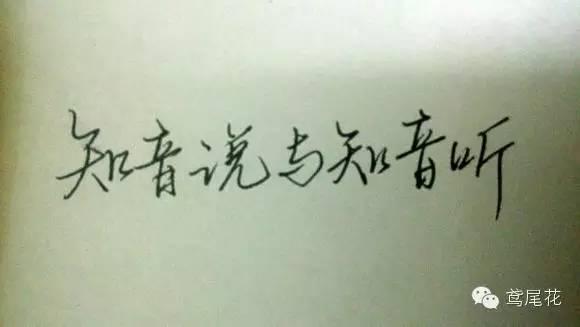 知音说与知音听
鸢尾花